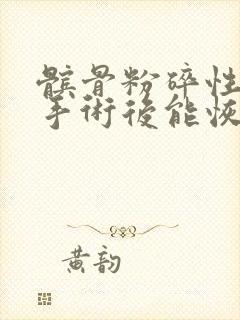 髌骨粉碎性
手術後能恢
黄韵